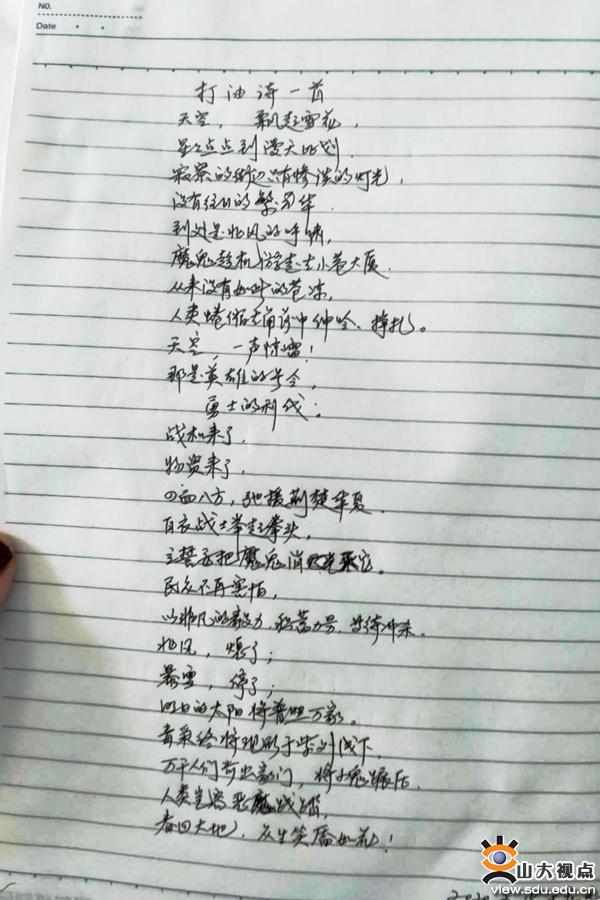 NO.
Date
打油诗一首
天空，飘起雪花，
星星点点到漫天比划.
寂寥的街边只有惨淡的灯光，
没有往日的繁华.
到处是北风的呼啸，
魔鬼趁机游走去小巷大厦.
从来没有如此的苍凉，
人类蜷缩在角落中呻吟、挣扎。
天空，一声惊雷！
那是英雄的号令，
勇士的利伐：
战机来了，
物资来了，
四面八方，驰援荆楚华夏.
白衣战士举起拳头，
立誓要把魔鬼消灭.
民众不再害怕，
以非凡的毅力，积蓄力量，等待冲来.
北风，熄了；
暴雪，停了；
明日的太阳将普照万家。
终将现形于紫外线下.
万千人们奔出家门，将小鬼碾压.
人类岂容恶魔践踏
春回大地，众生笑靥如花！
山大视点
view.sdu.edu.cn